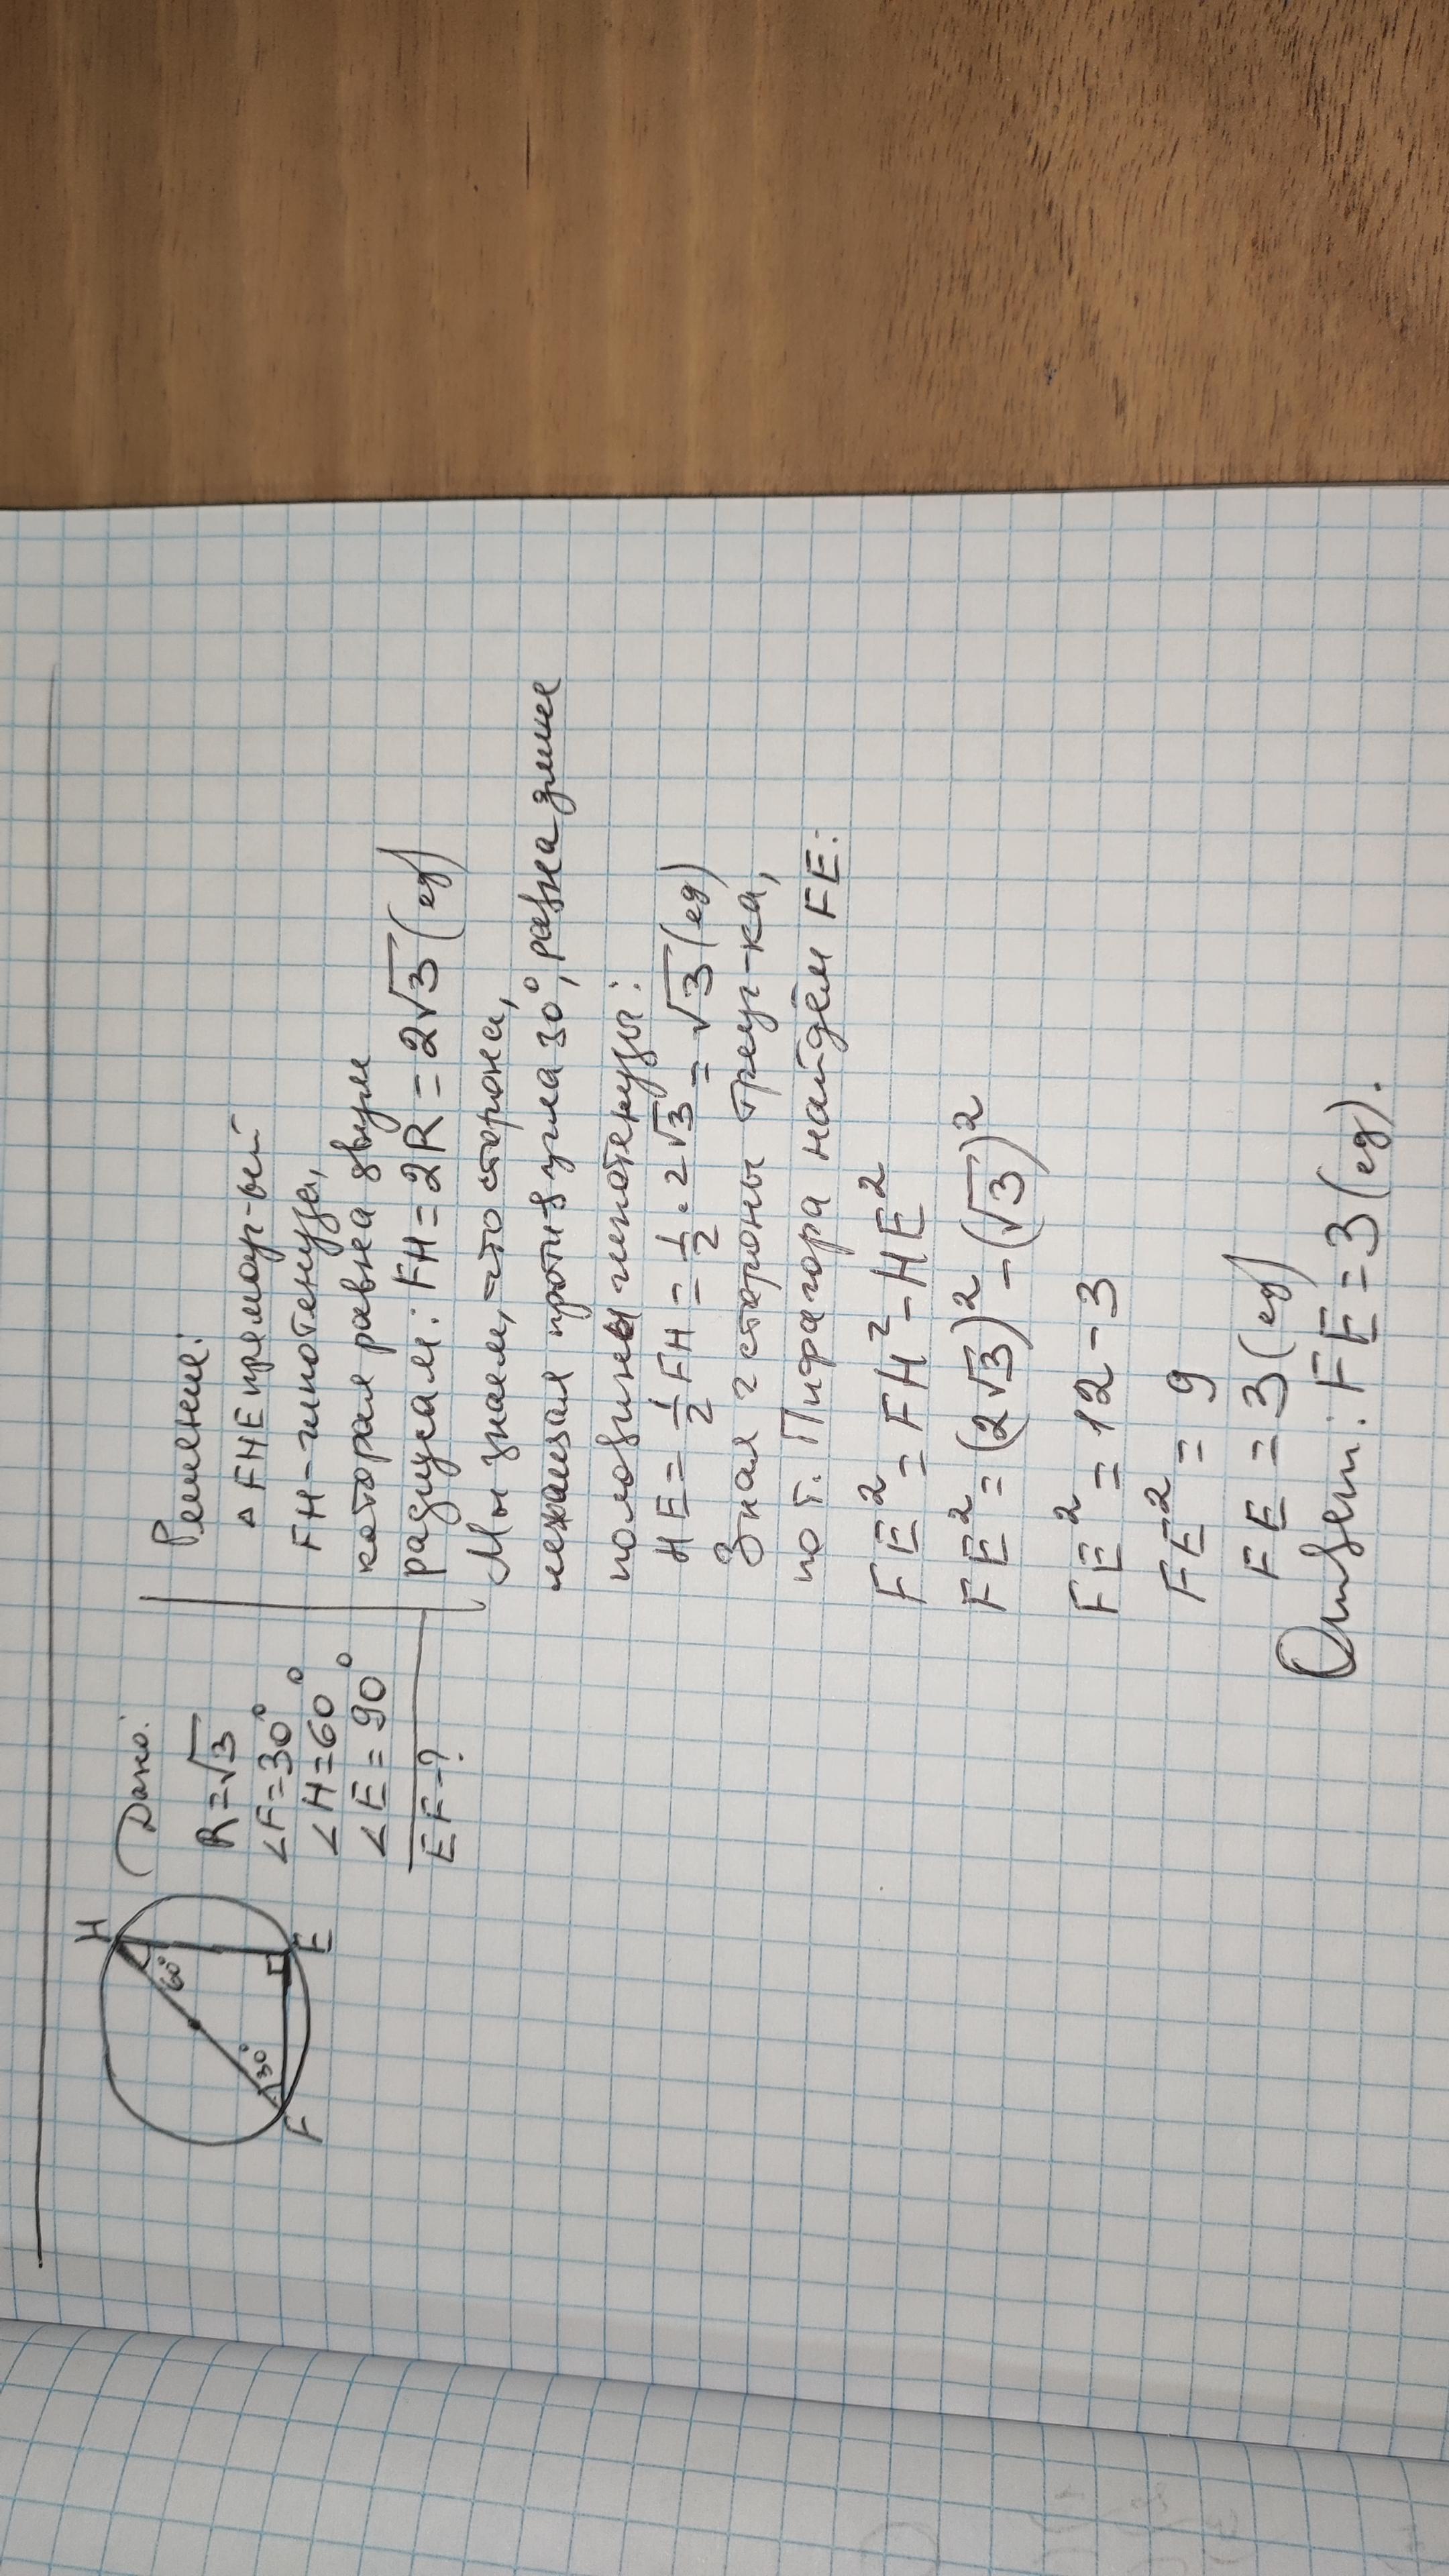 H
60°
30°
F
E
Дано:
R=√3
∠F=30°
∠H=60°
∠E=90°
EF-?
Решение:
△FHE прямоуг-ый
FH-гипотенуза,
которая равна двум
радиусам: FH=2R=2√3(ед)
Мы знаем, что сторона,
лежащая против угла 30°, равна длине
половины гипотенузы:
HE=1/2FH=1/2·2√3=√3(ед)
Зная 2 стороны треуг-ка,
по т. Пифагора найдём FE:
FE²=FH²-HE²
FE²=(2√3)²-(√3)²
FE²=12-3
FE²=9
FE=3(ед)
Ответ: FE=3(ед).